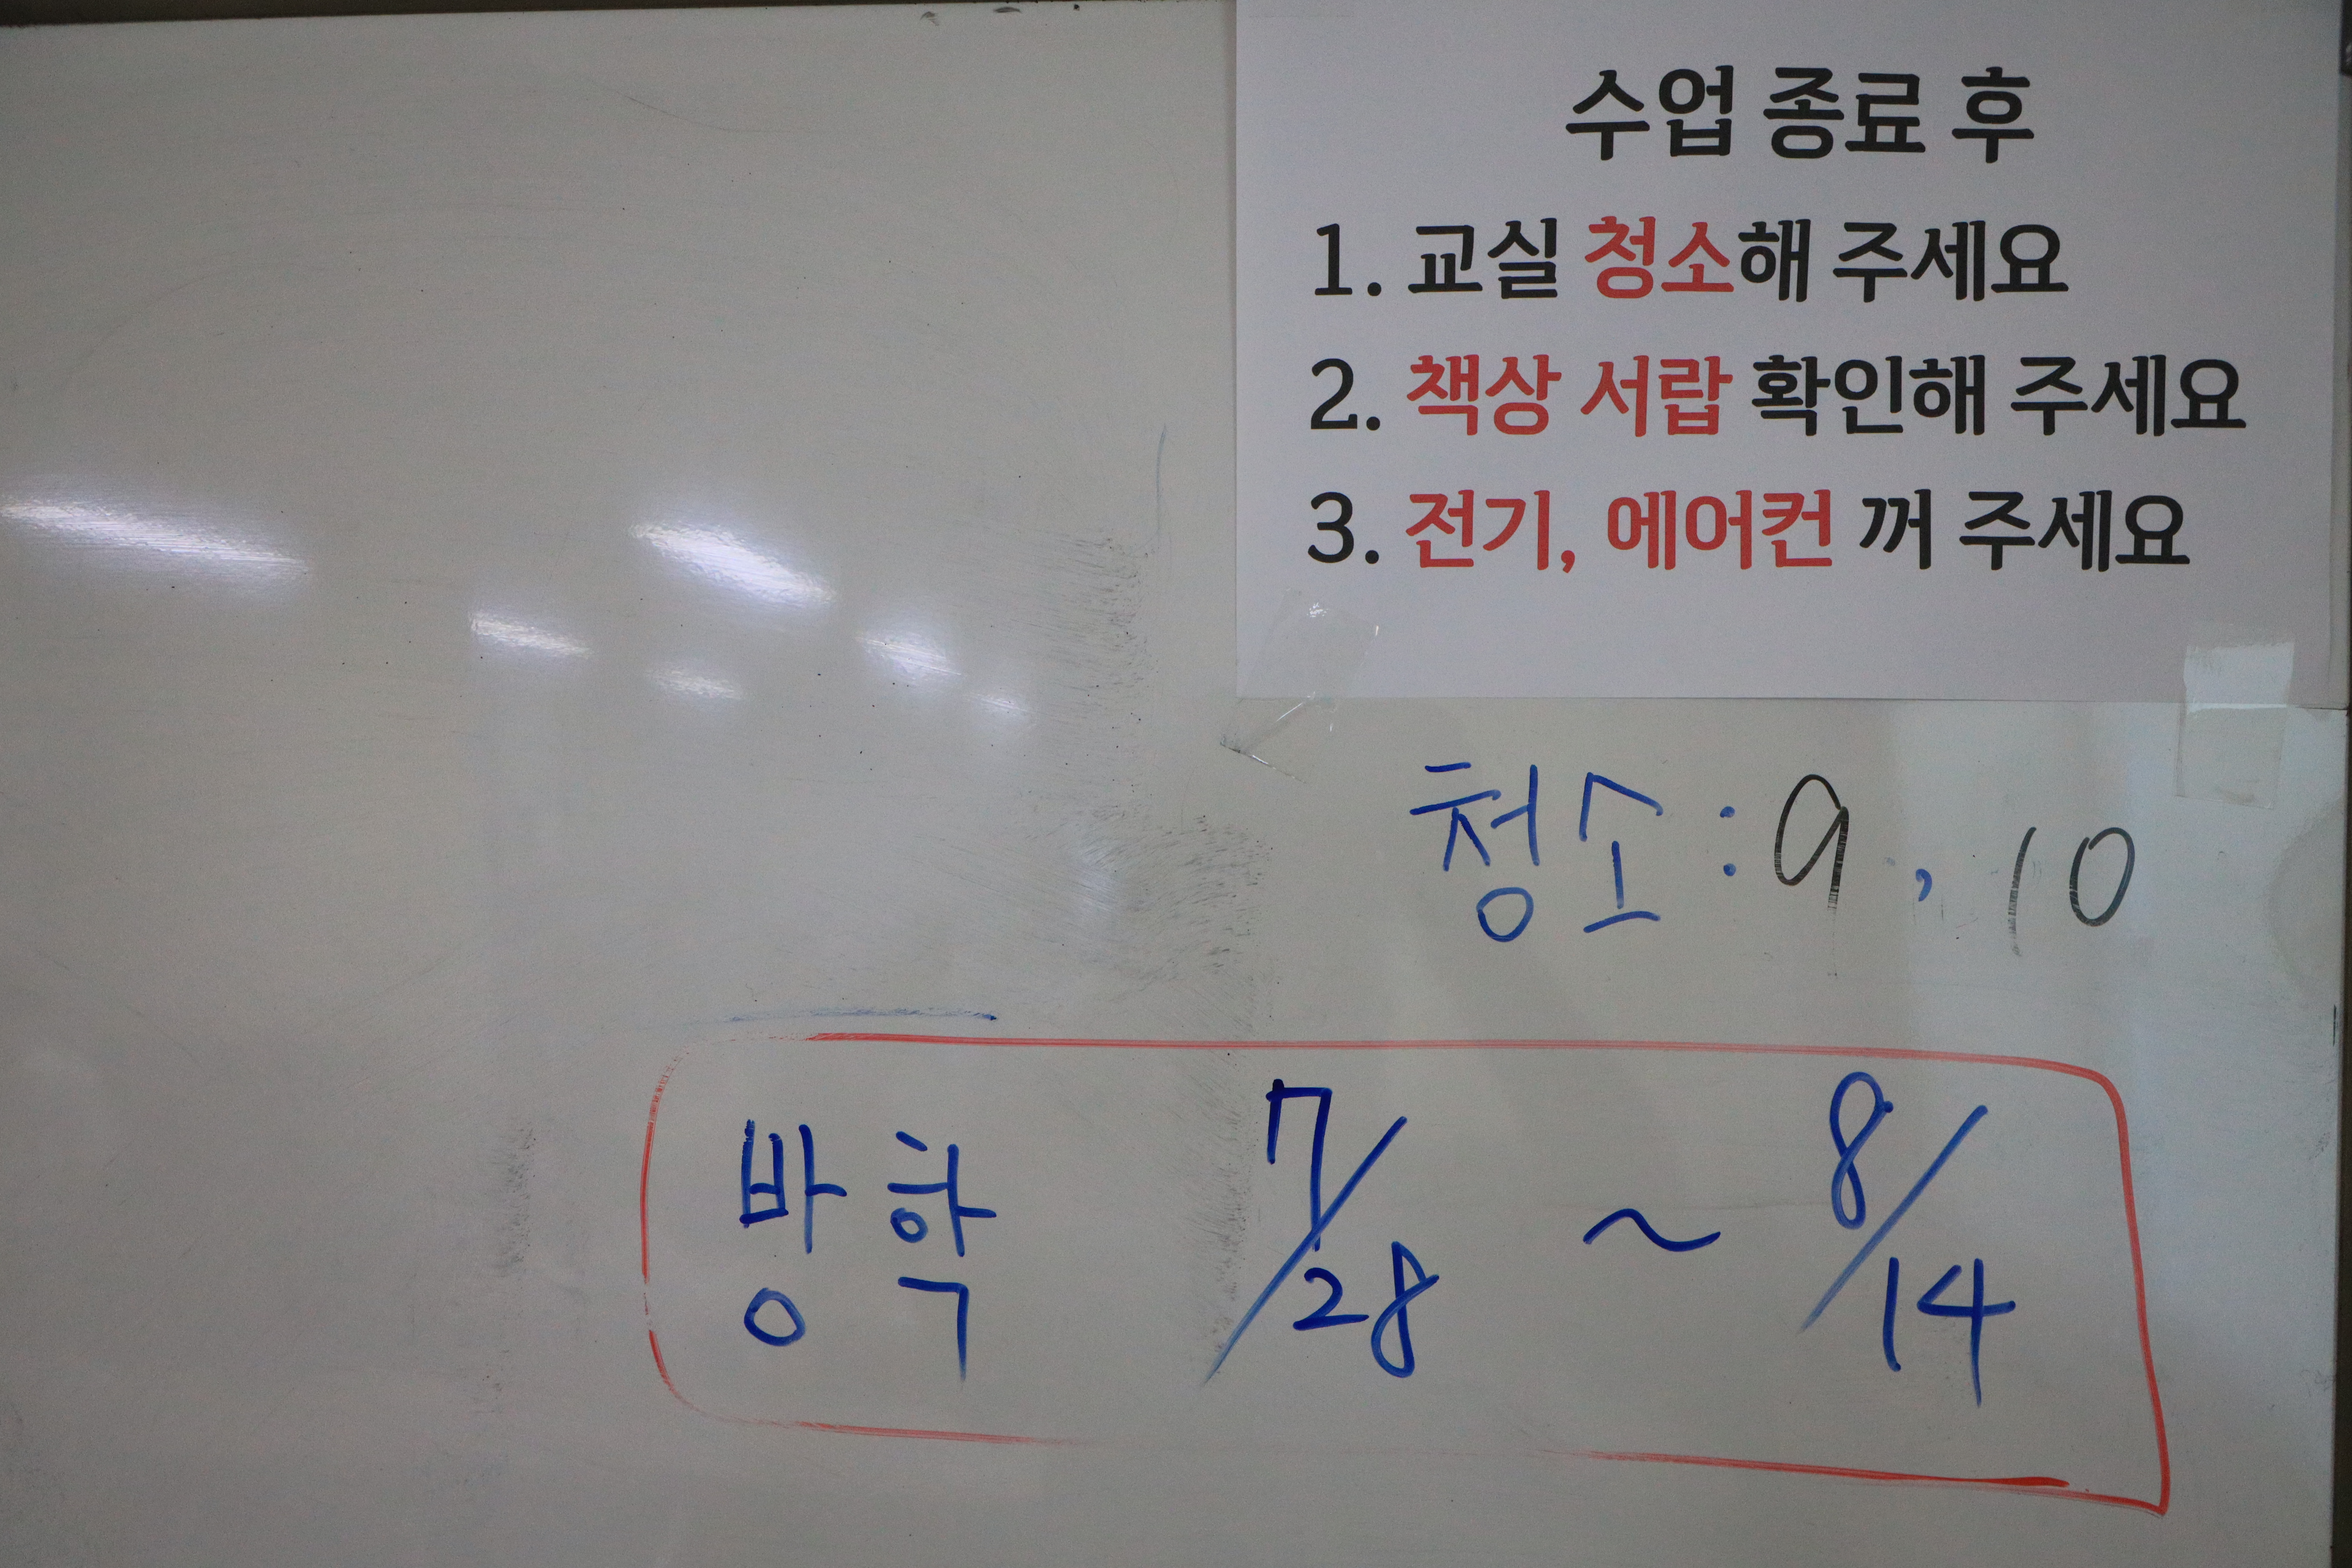 수업 종료 후
1. 교실 청소해 주세요
2. 책상 서랍 확인해 주세요
3. 전기, 에어컨 꺼 주세요
청소 : 9 , 10
방학 7/28 ~ 8/14